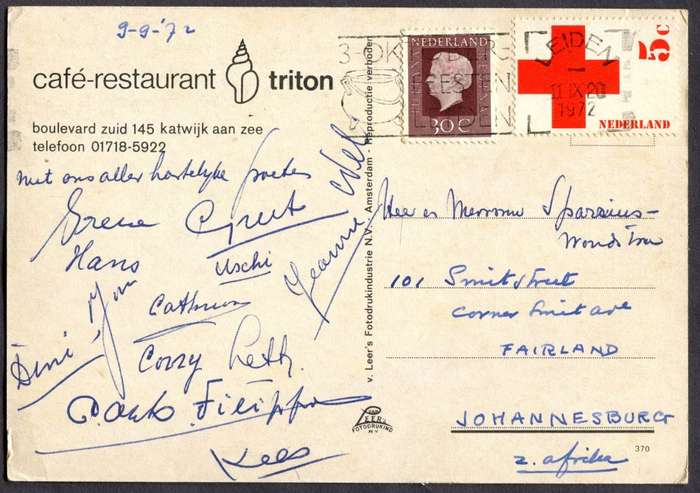 9-9-'72
café-restaurant triton
boulevard zuid 145 katwijk aan zee
telefoon 01718-5922
met ons aller hartelijke groeten
Greet
Hans
Uschi
Jeanne
Corry
Paolo Filippo
Kees
v. Leer's Fotodrukindustrie N.V. - Amsterdam - Reproductie verboden
VAN LEER'S
FOTODRUKIND
N.V.
NEDERLAND
30 c
5 c
NEDERLAND
3-OK
LEIDEN
11 IX 20
1972
Heer en Mevrouw Sparrius-
Wondstra
101 Smit Street
corner Smit Ave
FAIRLAND
JOHANNESBURG
z. afrika
370